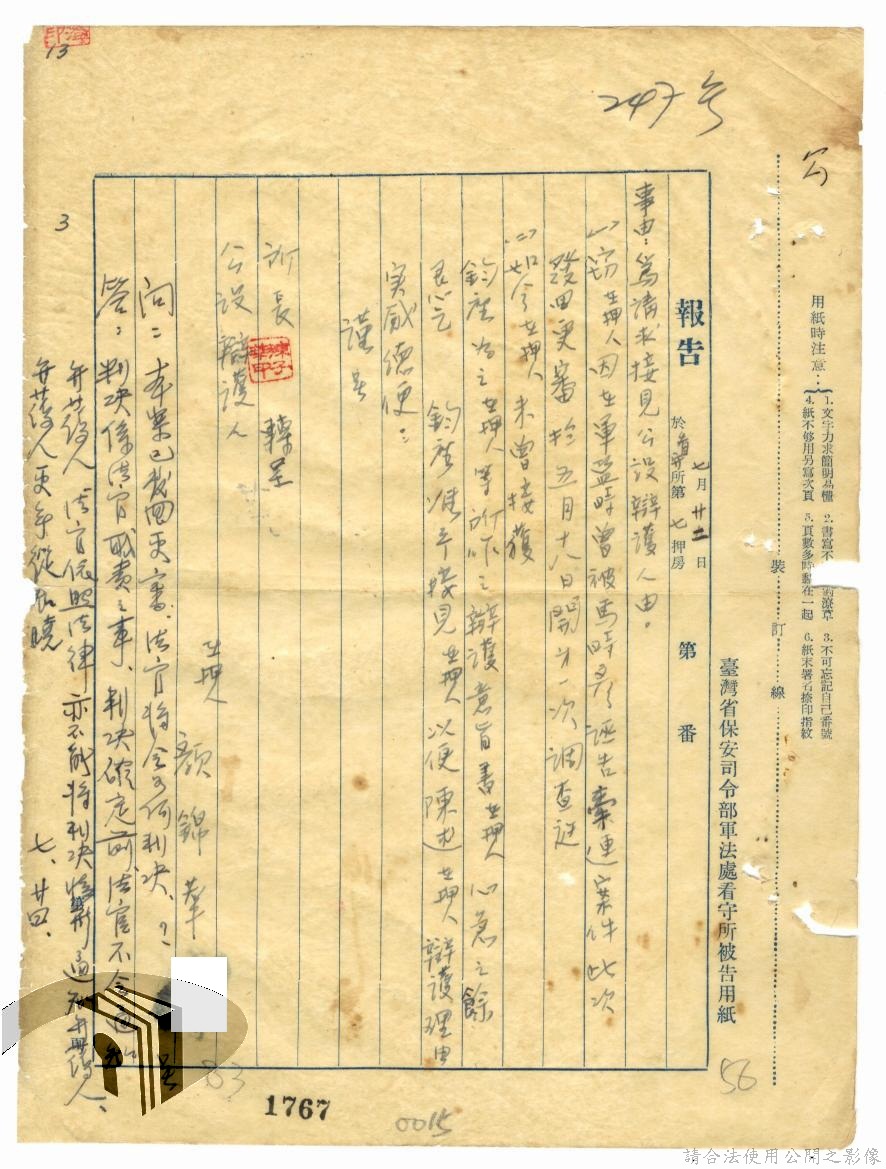 247号
用紙時注意：
1. 文字力求簡明易懂
2. 書寫不潦草
3. 不可忘記自己番號
4. 紙不够用另寫次頁
5. 頁數多時釘在一起
6. 紙末署名捺印指紋
裝訂線
臺灣省保安司令部軍法處看守所被告用紙
報告
七月廿二日
於看守所第七押房
第　番
事由：為請求接見公設辯護人由。
(一)竊在押人因在軍監時曾被馬時彥誣告牽連案件此次
發回更審於五月十八日開第一次調查庭
(二)如今在押人未曾接獲
鈞座為之在押人等所作之辯護意旨書在押人心急之餘
懇乞　鈞座准予接見在押人以便陳述在押人辯護理由
実感德便：
謹呈
所長　轉呈
公設辯護人
在押人　顏錦華
呈
問：本案已裁回更審、法官將会如何判决、？
答：判决係法官職責之事、判决確定前、法官不会
并辯護人法官依照法律亦不能將判决
七、廿四、
13
3
56
83
1767
0015
請合法使用公開之影像